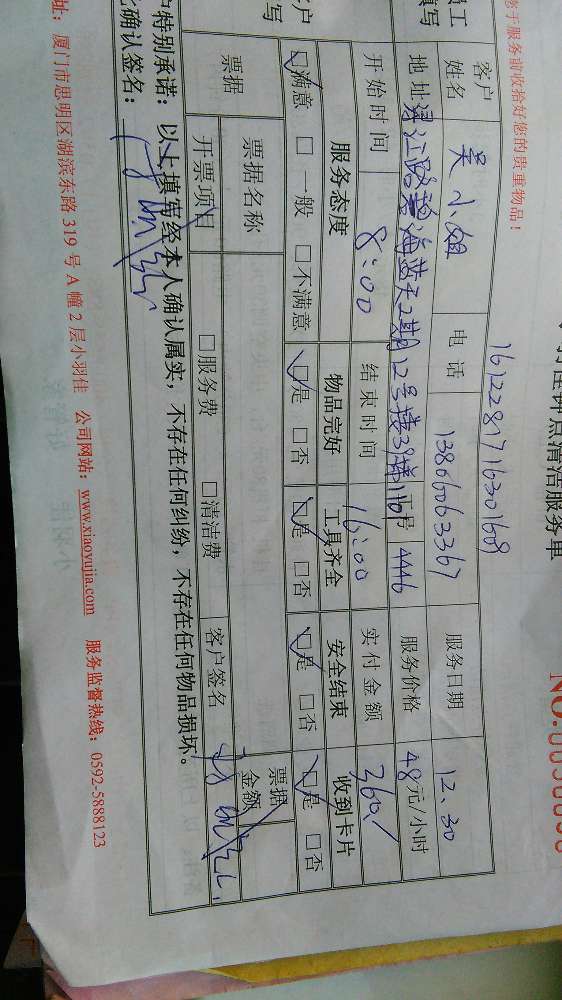 于服务前收拾好您的贵重物品！
钟点清洁服务单
1612281716301609
客户姓名 吴小姐 电话 13860603367 服务日期 12.30
地址 海蓝天2期12号楼 工号 4446 服务价格 48元/小时
开始时间 8:00 结束时间 16:00 实付金额 360
服务态度 物品完好 工具齐全 安全结束 收到卡片
☑满意 □一般 □不满意 ☑是 □否 ☑是 □否 ☑是 □否 ☑是 □否
票据 票据名称 票据金额
开票项目 □服务费 □清洁费 客户签名
户特别承诺：以上填写经本人确认属实，不存在任何纠纷，不存在任何物品损坏。
确认签名：
址：厦门市思明区湖滨东路 319 号 A 幢 2 层小羽佳 公司网站：www.xiaoyujia.com 服务监督热线：0592-5888123